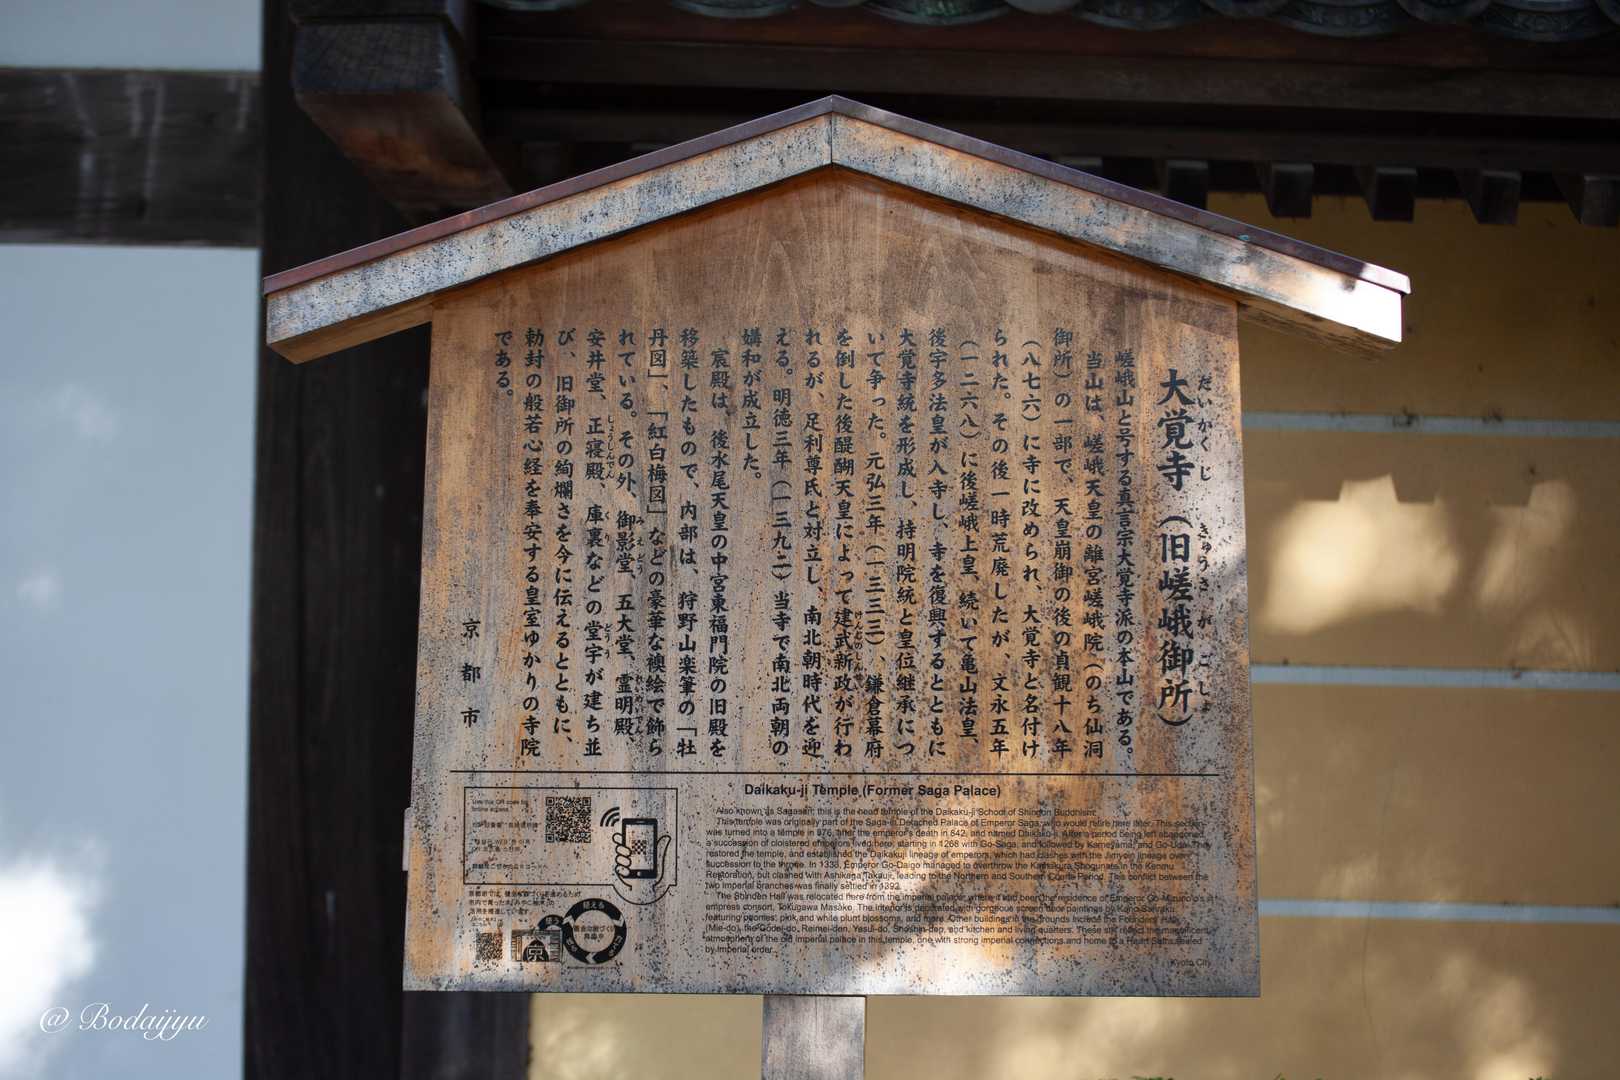 大覚寺（旧嵯峨御所）
だいかくじ　きゅうさがごしょ
嵯峨山と号する真言宗大覚寺派の本山である。
当山は、嵯峨天皇の離宮嵯峨院（のち仙洞
御所）の一部で、天皇崩御の後の貞観十八年
（八七六）に寺に改められ、大覚寺と名付け
られた。その後一時荒廃したが、文永五年
（一二六八）に後嵯峨上皇、続いて亀山法皇、
後宇多法皇が入寺し、寺を復興するとともに
大覚寺統を形成し、持明院統と皇位継承につ
いて争った。元弘三年（一三三三）、鎌倉幕府
を倒した後醍醐天皇によって建武新政が行わ
れるが、足利尊氏と対立し、南北朝時代を迎
える。明徳三年（一三九二）当寺で南北両朝の
媾和が成立した。
宸殿は、後水尾天皇の中宮東福門院の旧殿を
移築したもので、内部は、狩野山楽筆の「牡
丹図」、「紅白梅図」などの豪華な襖絵で飾ら
れている。その外、御影堂、五大堂、霊明殿、
安井堂、正寝殿、庫裏などの堂宇が建ち並
び、旧御所の絢爛さを今に伝えるとともに、
勅封の般若心経を奉安する皇室ゆかりの寺院
である。
京都市
Daikaku-ji Temple (Former Saga Palace)
Also known as Sagasan, this is the head temple of the Daikaku-ji School of Shingon Buddhism.
This temple was originally part of the Saga-in Detached Palace of Emperor Saga, who would retire here later. This section
was turned into a temple in 876, after the emperor's death in 842, and named Daikaku-ji. After a period being left abandoned,
a succession of cloistered emperors lived here, starting in 1268 with Go-Saga, and followed by Kameyama, and Go-Uda. They
restored the temple, and established the Daikakuji lineage of emperors, which had clashes with the Jimyoin lineage over
succession to the throne. In 1333, Emperor Go-Daigo managed to overthrow the Kamakura Shogunate in the Kenmu
Restoration, but clashed with Ashikaga Takauji, leading to the Northern and Southern Courts Period. This conflict between the
two imperial branches was finally settled in 1392.
The Shinden Hall was relocated here from the imperial palace, where it had been the residence of Emperor Go-Mizunoo's
empress consort, Tokugawa Masako. The interior is decorated with gorgeous screen door paintings by Kano Sanraku,
featuring peonies, pink and white plum blossoms, and more. Other buildings in the grounds include the Founders' Hall
(Mie-do), the Godai-do, Reimei-den, Yasui-do, Shoshin-den, and kitchen and living quarters. These still reflect the magnificent
atmosphere of the old imperial palace in this temple, one with strong imperial connections and home to a Heart Sutra sealed
by imperial order.
Kyoto City
@ Bodaijyu